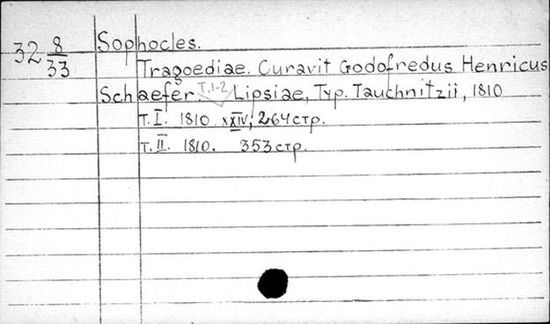 32 8/33 Sophocles.
Tragoediae. Curavit Godofredus Henricus
Schaefer. T.1-2 Lipsiae, Typ. Tauchnitzii, 1810
T.I. 1810. XXIV, 264 стр.
T.II. 1810. 353 стр.